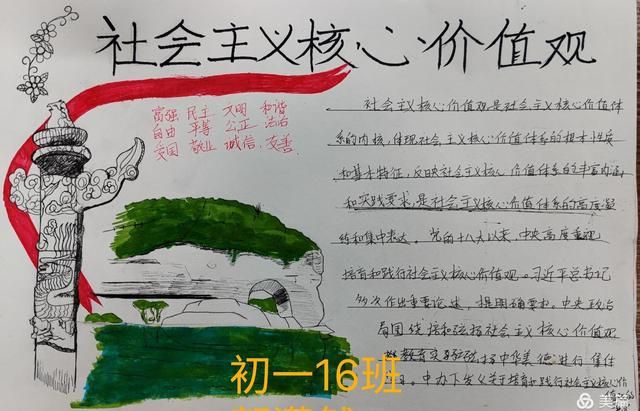 社会主义核心价值观
富强 民主 文明 和谐
自由 平等 公正 法治
爱国 敬业 诚信 友善
社会主义核心价值观是社会主义核心价值体
系的内核,体现社会主义核心价值体系的根本性质
和基本特征,反映社会主义核心价值体系的丰富内涵
和实践要求,是社会主义核心价值体系的高度凝
练和集中表达。党的十八大以来,中央高度重视
培育和践行社会主义核心价值观。习近平总书记
多次作出重要论述、提出明确要求。中央政治
局围绕培和弘扬社会主义核心价值观
扬中华美德进行集体
中办下发关于培育和践行社会主义核心价
初一16班
美篇